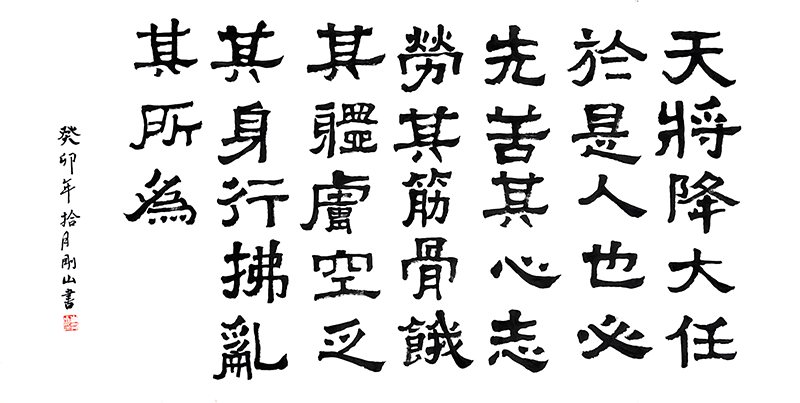 天將降大任
於是人也必
先苦其心志
勞其筋骨餓
其體膚空乏
其身行拂亂
其所為
癸卯年拾月剛山書